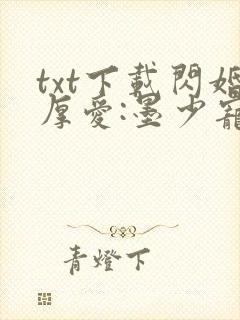 txt下載閃婚
厚愛:墨少寵
青燈下